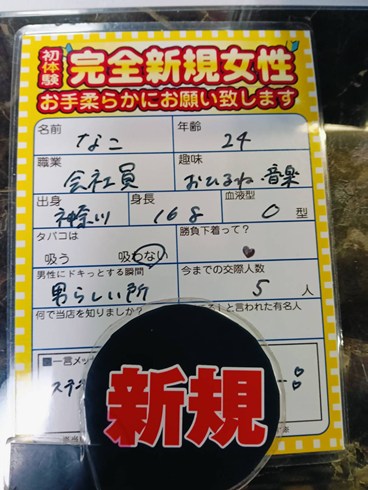 初体験 完全新規女性
お手柔らかにお願い致します
名前 なこ 年齢 24
職業 会社員 趣味 おひるね 音楽
出身 神奈川 身長 168 血液型 O型
タバコは 吸う 吸わない 勝負下着って?
男性にドキっとする瞬間 男らしい所 今までの交際人数 5人
何で当店を知りましたか? と言われた有名人
■一言メッ
ステ
新規